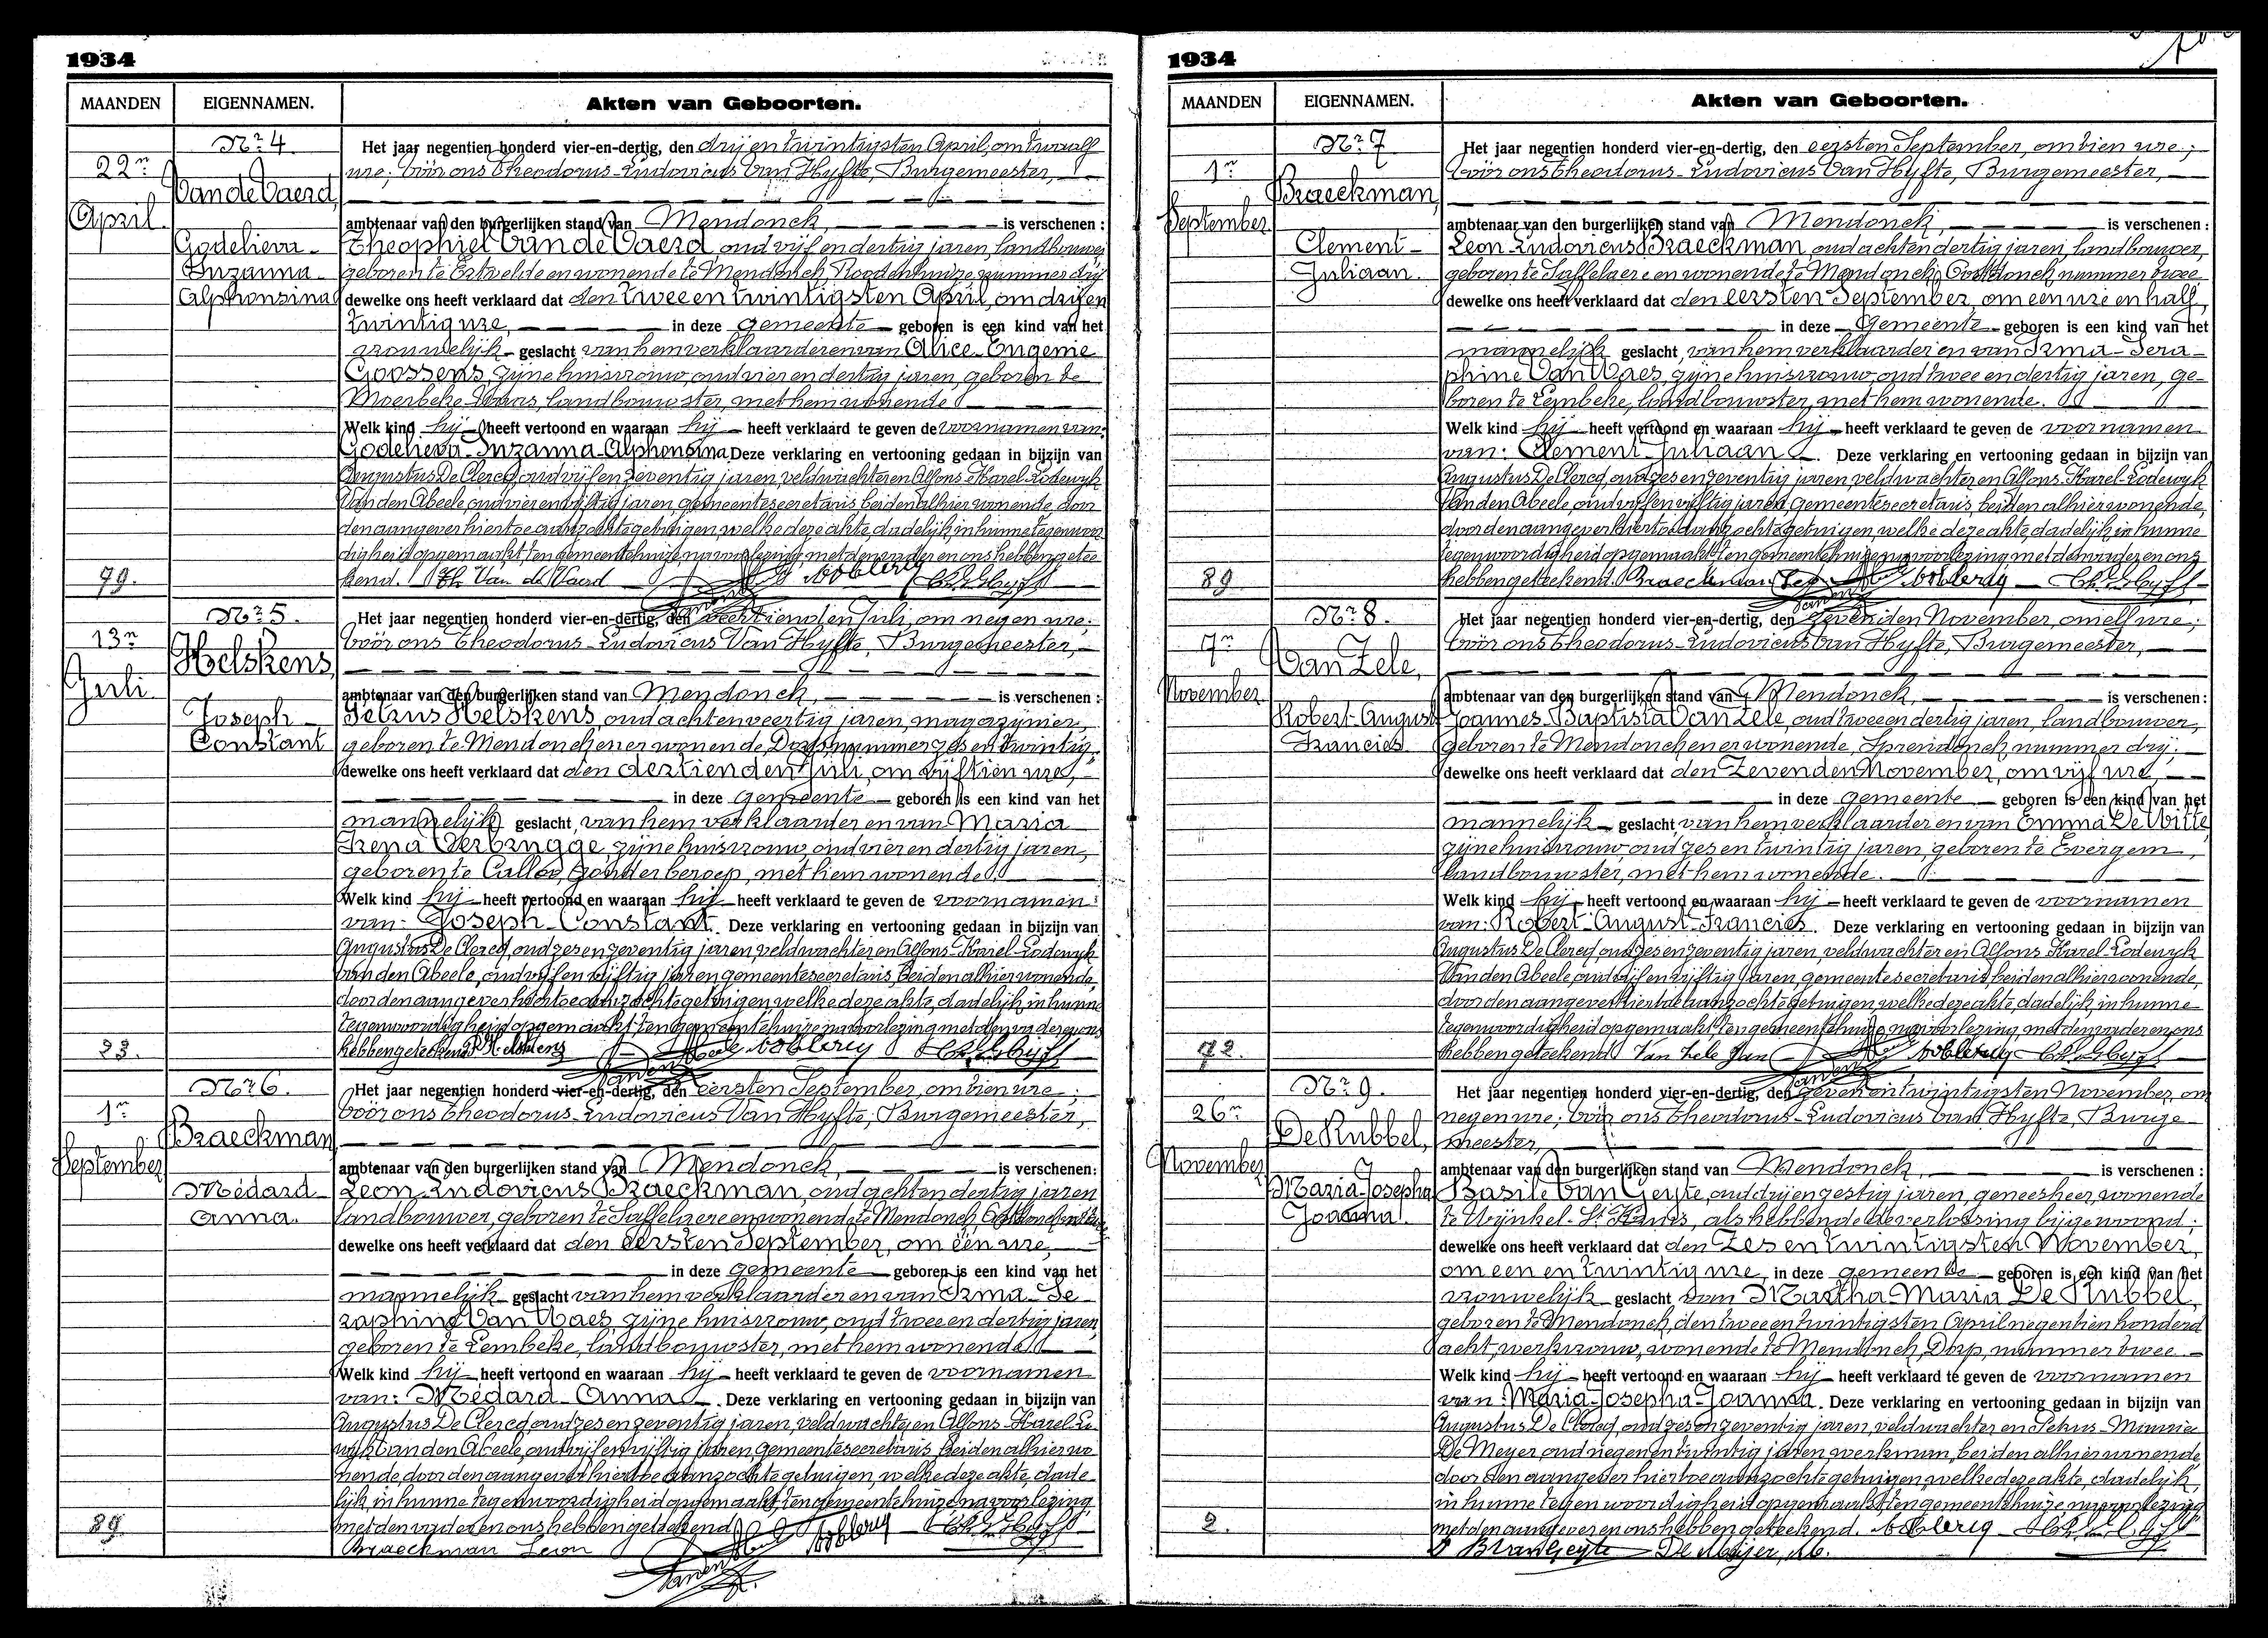 1934
MAANDEN EIGENNAMEN. Akten van Geboorten.
22n
April
Nr 4
Van de Vaerd,
Godelieva-
Suzanna-
Alphonsina
Het jaar negentien honderd vier-en-dertig, den drij en twintigsten April, om twaalf
ure, vóór ons Theodorus-Ludovicus Van Hyfte, Burgemeester,
ambtenaar van den burgerlijken stand van Mendonck, is verschenen :
Theophiel Van de Vaerd, oud vijf en dertig jaren, landbouwer,
geboren te Ertvelde en wonende te Mendonck, Roodenhuize nummer drij
dewelke ons heeft verklaard dat den twee en twintigsten April, om drij en
twintig ure, in deze gemeente geboren is een kind van het
vrouwelijk geslacht van hem verklaarder en van Alice-Eugenie
Goossens, zijne huisvrouw, oud vier en dertig jaren, geboren te
Moerbeke-Waas, landbouwster, met hem wonende
Welk kind hij heeft vertoond en waaraan hij heeft verklaard te geven de voornamen van:
Godelieva-Suzanna-Alphonsina. Deze verklaring en vertooning gedaan in bijzijn van
Augustus De Clercq, oud vijf en zeventig jaren, veldwachter en Alfons-Karel-Lodewyk
Van den Abeele, oud vier en vijftig jaren, gemeentesecretaris, beiden alhier wonende, door
den aangever hiertoe aanzochte getuigen, welke deze akte, dadelijk in hunne tegenwoor
digheid opgemaakt, ten gemeentehuize, na voorlezing, met den vader en ons hebben getee
kend. Th. Van de Vaerd
79.
13n
Juli
Nr 5.
Helskens,
Joseph-
Constant
Het jaar negentien honderd vier-en-dertig, den veertienden Juli, om negen ure,
vóór ons Theodorus-Ludovicus Van Hyfte, Burgemeester,
ambtenaar van den burgerlijken stand van Mendonck, is verschenen :
Petrus Helskens, oud acht en veertig jaren, magazijnier,
geboren te Mendonck en er wonende, Dorp nummer zes en twintig.
dewelke ons heeft verklaard dat den dertienden Juli, om vijftien ure,
in deze gemeente geboren is een kind van het
mannelijk geslacht, van hem verklaarder en van Maria
Irena Verbrugge, zijne huisvrouw, oud vier en dertig jaren,
geboren te Calloo, zonder beroep, met hem wonende.
Welk kind hij heeft vertoond en waaraan hij heeft verklaard te geven de voornamen
van: Joseph-Constant. Deze verklaring en vertooning gedaan in bijzijn van
Augustus De Clercq, oud zes en zeventig jaren, veldwachter en Alfons-Karel-Lodewyk
Van den Abeele, oud vijf en vijftig jaren gemeentesecretaris, beiden alhier wonende,
door den aangever hiertoe aanzochte getuigen, welke deze akte, dadelijk in hunne
tegenwoordigheid opgemaakt, ten gemeentehuize, na voorlezing met den vader en ons
hebben geteekend. P. Helskens
23.
1n
September
Nr 6.
Braeckman,
Médard-
Anna.
Het jaar negentien honderd vier-en-dertig, den eersten September, om tien ure,
vóór ons Theodorus-Ludovicus Van Hyfte, Burgemeester,
ambtenaar van den burgerlijken stand van Mendonck, is verschenen:
Leon-Ludovicus Braeckman, oud acht en dertig jaren
landbouwer, geboren te Saffelaere en wonende te Mendonck,
dewelke ons heeft verklaard dat den eersten September, om één ure,
in deze gemeente geboren is een kind van het
mannelijk geslacht van hem verklaarder en van Irma-Se
raphine Van Waes, zijne huisvrouw, oud twee en dertig jaren,
geboren te Lembeke, landbouwster, met hem wonende
Welk kind hij heeft vertoond en waaraan hij heeft verklaard te geven de voornamen
van: Médard-Anna. Deze verklaring en vertooning gedaan in bijzijn van
Augustus De Clercq, oud zes en zeventig jaren, veldwachter en Alfons-Karel-Lo
wyk Van den Abeele, oud vijf en vijftig jaren gemeentesecretaris, beiden alhier wo
nende, door den aangever hiertoe aanzochte getuigen, welke deze akte, dade
lijk in hunne tegenwoordigheid opgemaakt, ten gemeentehuize na voorlezing,
met den vader en ons hebben geteekend
Braeckman Leon
89
1934
MAANDEN EIGENNAMEN. Akten van Geboorten.
1n
September
Nr 7
Braeckman,
Clement-
Juliaan.
Het jaar negentien honderd vier-en-dertig, den eersten September, om tien ure,
vóór ons Theodorus-Ludovicus Van Hyfte, Burgemeester,
ambtenaar van den burgerlijken stand van Mendonck, is verschenen :
Leon-Ludovicus Braeckman, oud acht en dertig jaren, landbouwer,
geboren te Saffelaere en wonende te Mendonck, Oostdonck nummer twee
dewelke ons heeft verklaard dat den eersten September, om een ure en half,
in deze Gemeente geboren is een kind van het
mannelijk geslacht, van hem verklaarder en van Irma-Sera-
phine Van Waes, zijne huisvrouw, oud twee en dertig jaren, ge-
boren te Lembeke, landbouwster, met hem wonende.
Welk kind hij heeft vertoond en waaraan hij heeft verklaard te geven de voornamen
van: Clement-Juliaan. Deze verklaring en vertooning gedaan in bijzijn van
Augustus De Clercq, oud zes en zeventig jaren, veldwachter en Alfons-Karel-Lodewyk
Van den Abeele, oud vijf en vijftig jaren, gemeentesecretaris, beiden alhier wonende,
door den aangever hiertoe aanzochte getuigen, welke deze akte, dadelijk in hunne
tegenwoordigheid opgemaakt, ten gemeentehuize na voorlezing met den vader en ons
hebben geteekend. Braeckman Leon
89
7n
November
Nr 8.
Van Zele,
Robert-August
Francies
Het jaar negentien honderd vier-en-dertig, den zevenden November, om elf ure,
vóór ons Theodorus-Ludovicus Van Hyfte, Burgemeester,
ambtenaar van den burgerlijken stand van Mendonck, is verschenen :
Joannes-Baptista Van Zele, oud twee en dertig jaren, landbouwer,
geboren te Mendonck en er wonende, Sprendonck nummer drij.
dewelke ons heeft verklaard dat den Zevenden November, om vijf ure,
in deze gemeente geboren is een kind van het
mannelijk geslacht, van hem verklaarder en van Emma De Witte,
zijne huisvrouw, oud zes en twintig jaren, geboren te Evergem,
landbouwster, met hem wonende.
Welk kind hij heeft vertoond en waaraan hij heeft verklaard te geven de voornamen
van: Robert-August-Francies. Deze verklaring en vertooning gedaan in bijzijn van
Augustus De Clercq, oud zes en zeventig jaren, veldwachter en Alfons-Karel-Lodewyk
Van den Abeele, oud vijf en vijftig jaren, gemeentesecretaris, beiden alhier wonende,
door den aangever hiertoe aanzochte getuigen, welke deze akte, dadelijk, in hunne
tegenwoordigheid opgemaakt ten gemeentehuize, na voorlezing, met den vader en ons
hebben geteekend Van Zele Jan
72.
26n
November
Nr 9.
De Rubbel,
Maria-Josepha
Joanna.
Het jaar negentien honderd vier-en-dertig, den zeven en twintigsten November, om
negen ure, vóór ons Theodorus-Ludovicus Van Hyfte, Burge-
meester,
ambtenaar van den burgerlijken stand van Mendonck, is verschenen :
Basile Van Geyte, oud drij en zestig jaren, geneesheer, wonende
te Wijnkel-St Kruis, als hebbende de verlossing bijgewoond;
dewelke ons heeft verklaard dat den Zes en twintigsten November,
om een en twintig ure, in deze gemeente geboren is een kind van het
vrouwelijk geslacht van Martha-Maria De Rubbel,
geboren te Mendonck, den twee en twintigsten April negentien honderd
acht, werkvrouw, wonende te Mendonck, Dorp, nummer twee.
Welk kind hij heeft vertoond en waaraan hij heeft verklaard te geven de voornamen
van: Maria-Josepha-Joanna. Deze verklaring en vertooning gedaan in bijzijn van
Augustus De Clercq, oud zes en zeventig jaren, veldwachter en Petrus-
De Meyer, oud negen en twintig jaren, werkman, beiden alhier wonende,
door den aangever hiertoe aanzochte getuigen, welke deze akte, dadelijk,
in hunne tegenwoordigheid opgemaakt, ten gemeentehuize, na voorlezing
met den aangever en ons hebben geteekend.
B Van Geyte De Meijer, M.
2.